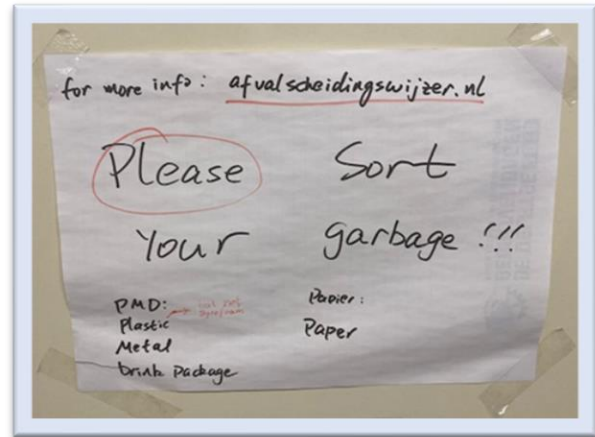 for more info: afvalscheidingswijzer.nl
Please Sort
Your garbage !!!
PMD:
Plastic
Metal
Drink Package
Papier:
Paper